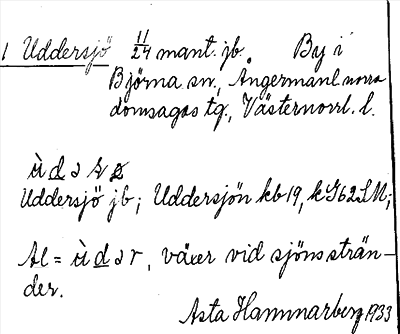 1 Uddersjö 11/24 mant. jb. By i
Björna sn., Ångermanl. norra
domsagas tg., Västernorrl. l.
ù d ə ʂ ø
Uddersjö jb; Uddersjön kb 19, k G62SM;
Al = ù d ə r, växer vid sjöns strän-
der.
Asta Hammarberg 1933